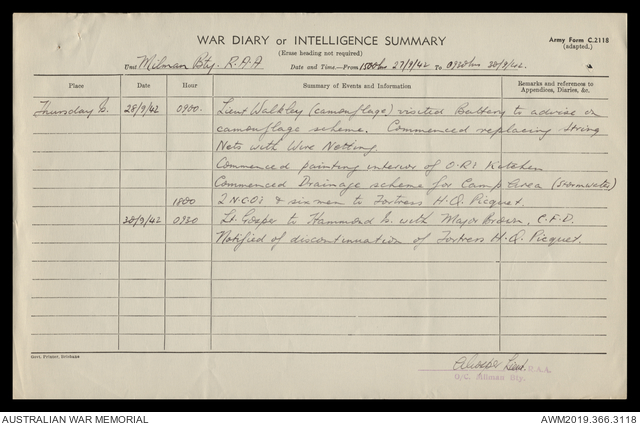 WAR DIARY or INTELLIGENCE SUMMARY
Army Form C.2118
(Erase heading not required)
(adapted.)
Unit Milman Bty. R.A.A. Date and Time.—From 1500 hrs 27/9/42 To 0930 hrs 28/9/42.
Place Date Hour Summary of Events and Information Remarks and references to Appendices, Diaries, &c.
Thursday Is. 28/9/42 0900. Lieut Walkley (camouflage) visited Battery to advise on
camouflage scheme. Commenced replacing String
Nets with Wire Netting
Commenced painting interior of O.R's Kitchen
Commenced Drainage scheme for Camp Area (Stormwater)
1800 2 N.C.O's & six men to Fortress H.Q. Picquet.
28/9/42 0930 Lt. Gosper to Hammond Is. with Major Brown, C.F.D.
Notified of discontinuation of Fortress H.Q. Picquet.
Govt. Printer, Brisbane
Lieut. R.A.A.
O/C. Milman Bty.
AUSTRALIAN WAR MEMORIAL
AWM2019.366.3118